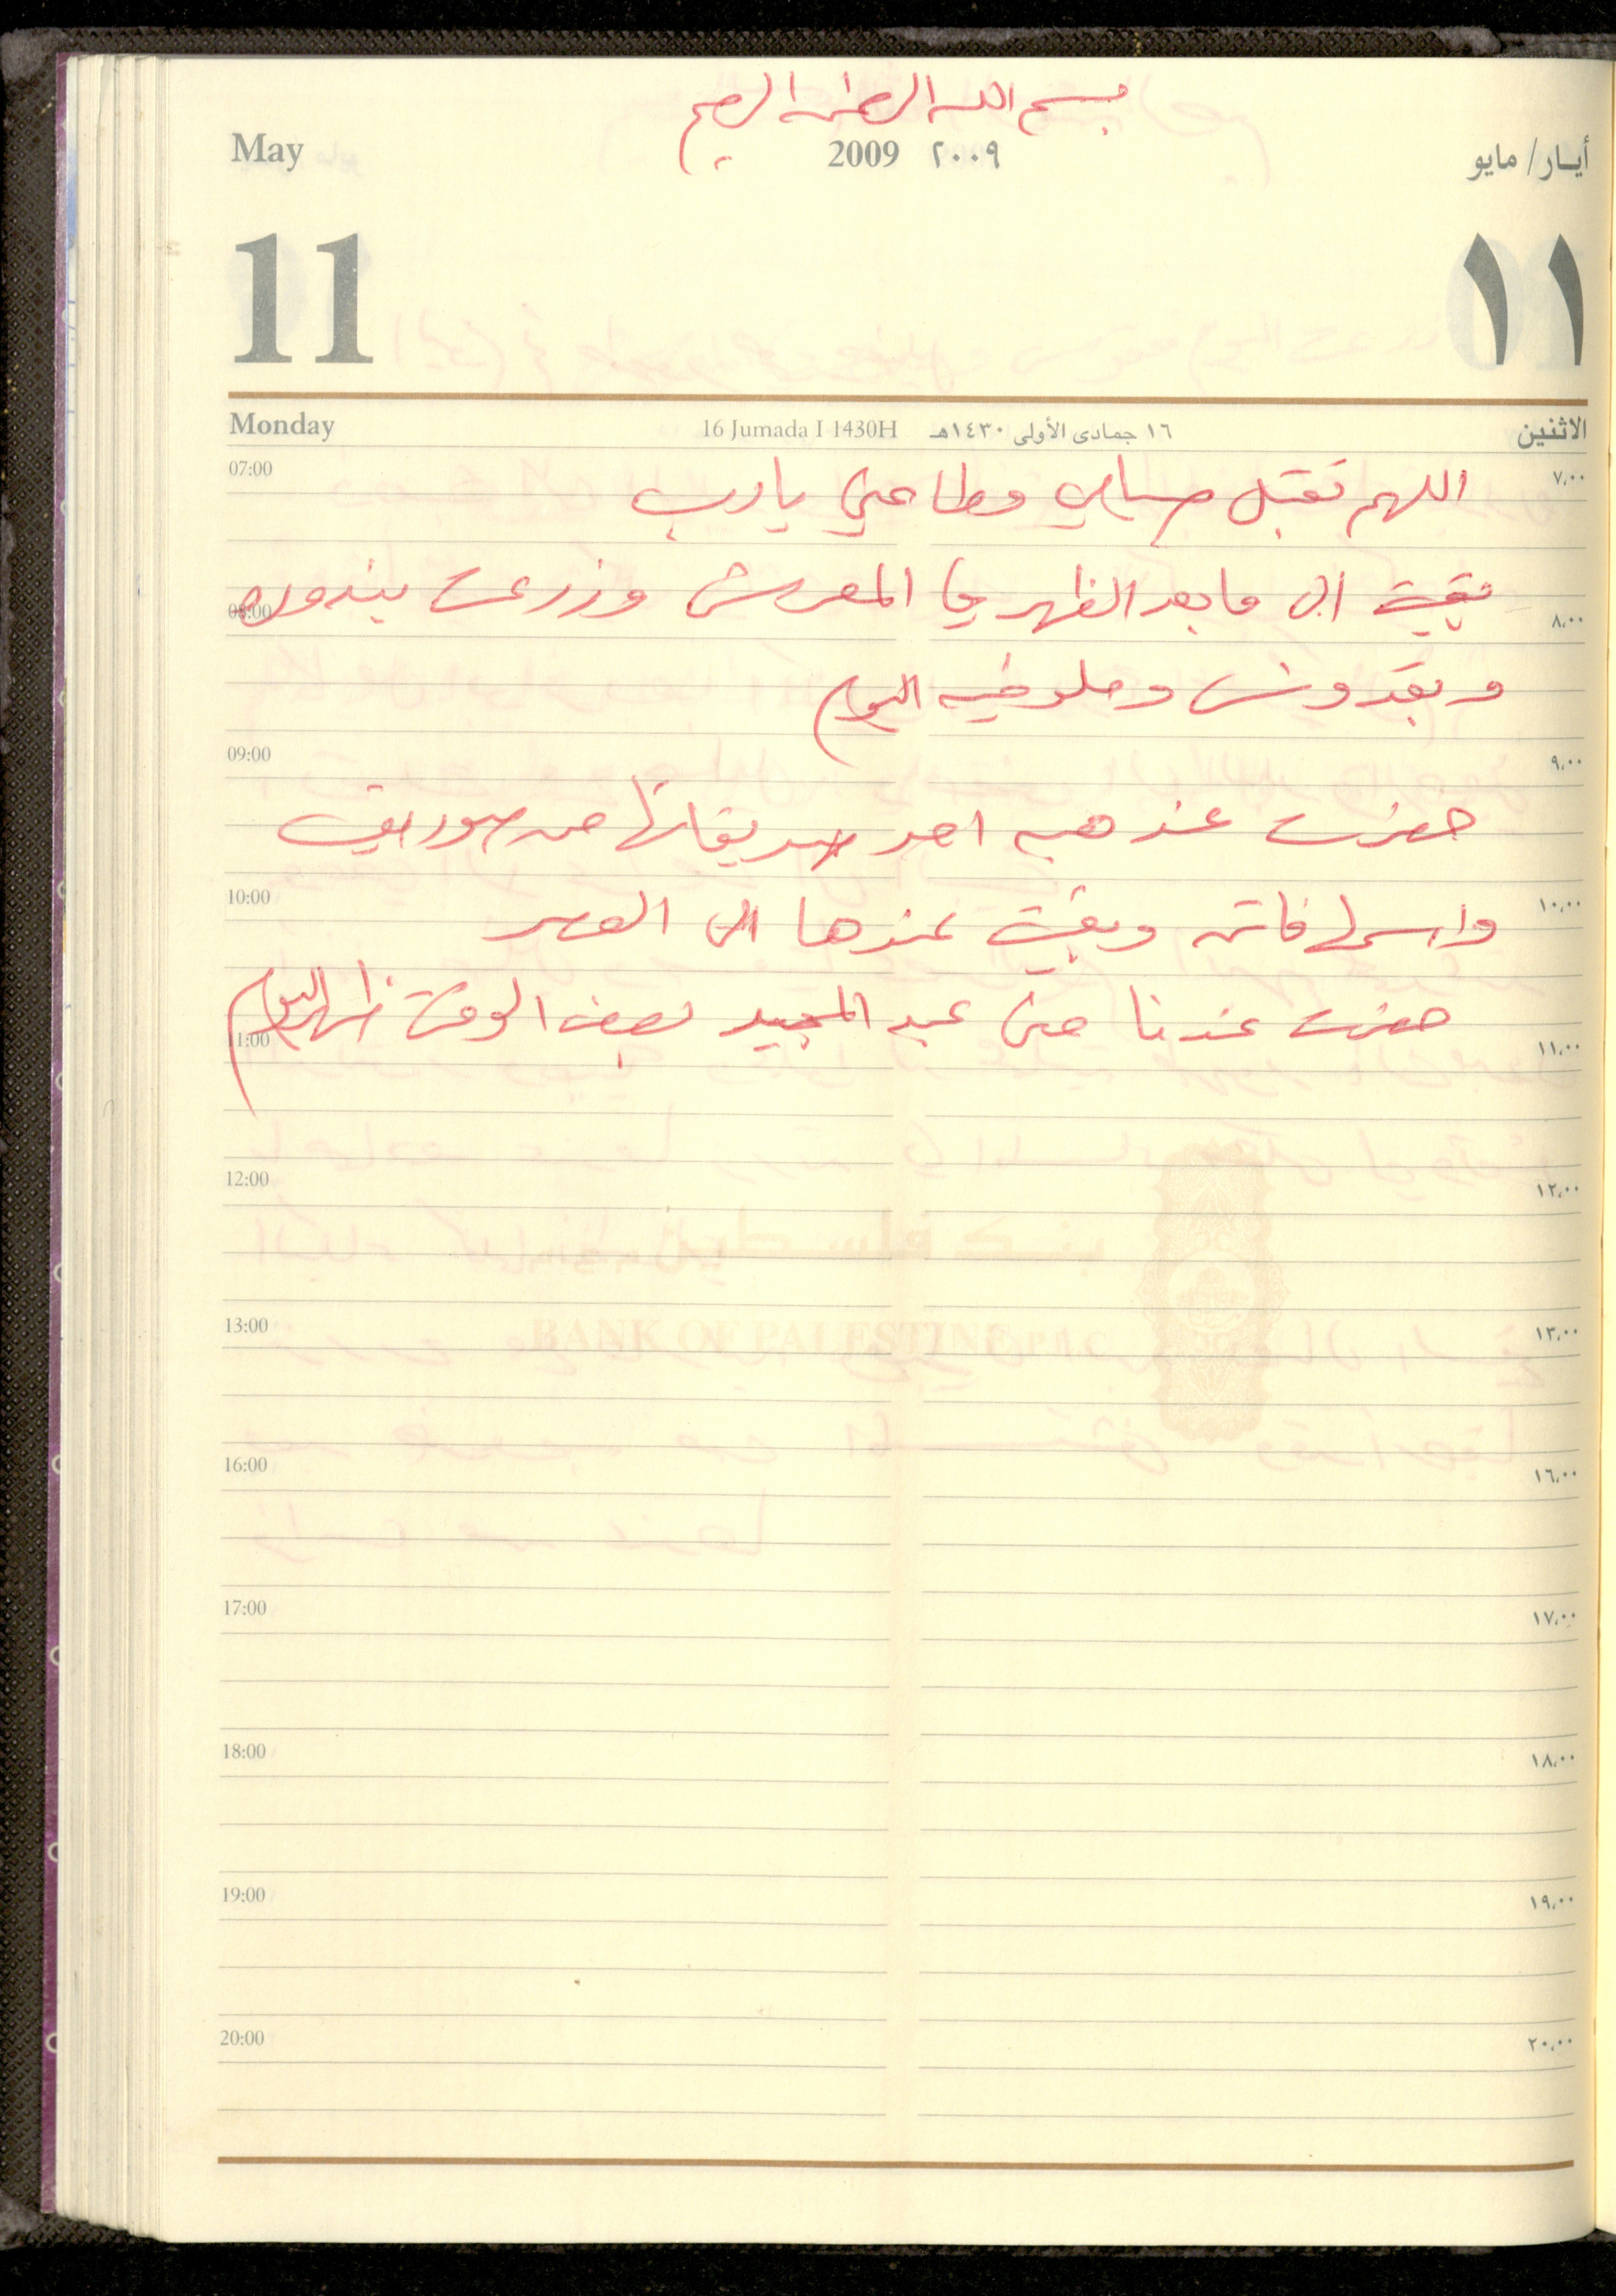 بسم الله الرحمن الرحيم
May 2009 ٢٠٠٩ أيـار/ مايو
11 ١١
Monday 16 Jumada I 1430H ١٦ جمادى الأولى ١٤٣٠هـ الاثنين
07:00 ٧،٠٠
اللهم تقبل صيامي وطاعتي يارب
بقيت الى ما بعد الظهر في المعرش وزرعت بندوره
08:00 ٨،٠٠
وبقدونس وملوخيه اليوم
09:00 ٩،٠٠
حضرت عند هبه احد صديقاتها من صوريف
10:00 ١٠،٠٠
واسمها فاتن وبقيت عندها الى العصر
حضرت عندنا منى عبد المجيد نصف الوقت ظهر اليوم
11:00 ١١،٠٠
12:00 ١٢،٠٠
BANK OF PALESTINE
13:00 ١٣،٠٠
16:00 ١٦،٠٠
17:00 ١٧،٠٠
18:00 ١٨،٠٠
19:00 ١٩،٠٠
20:00 ٢٠،٠٠